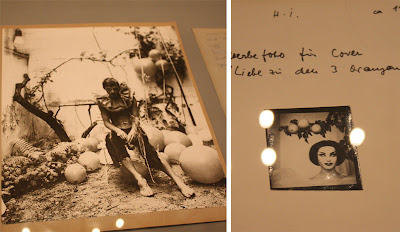 H.i. ca 1
erbefoto für Cover
"Liebe zu den 3 Orangen